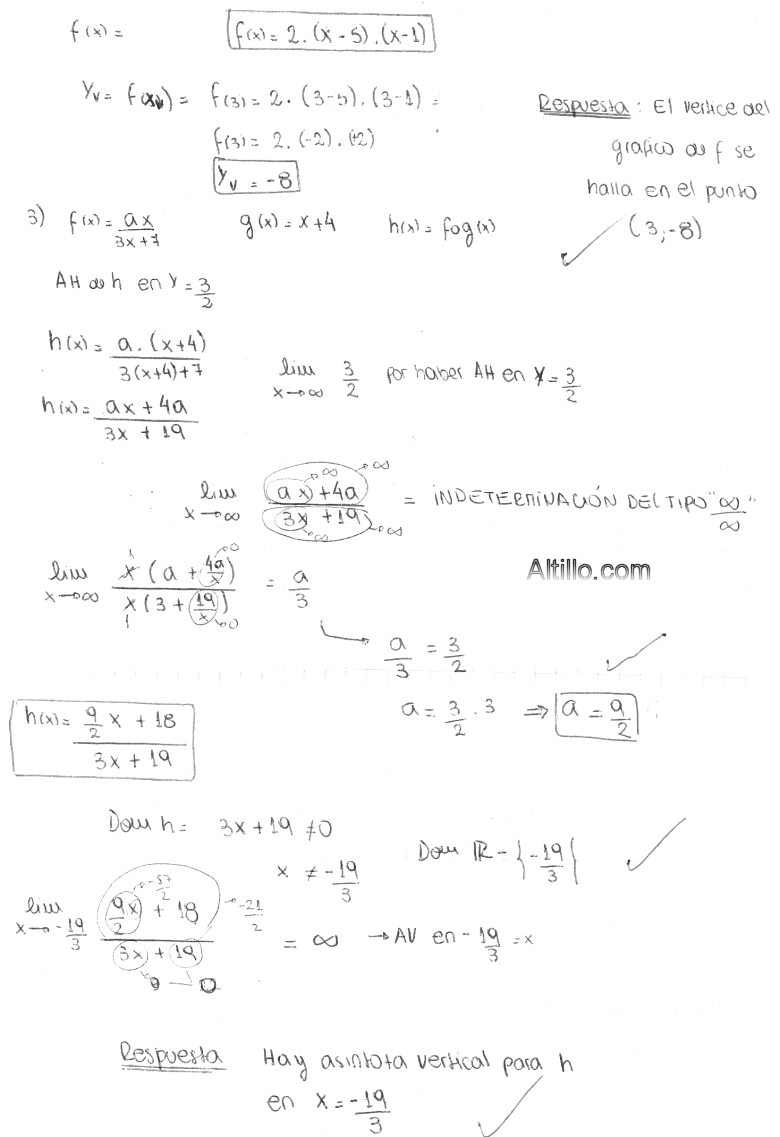 f(x) = f(x) = 2. (x - 5). (x-1)
Yv = f(xv) = f(3) = 2. (3-5). (3-1) =
f(3) = 2. (-2). (+2)
Yv = -8
Respuesta: El vertice del
grafico de f se
halla en el punto
(3,-8)
3) f(x) = ax/(3x+7) g(x) = x+4 h(x) = fog(x)
AH de h en Y = 3/2
h(x) = a. (x+4)/(3(x+4)+7)
lim x→∞ 3/2 por haber AH en Y = 3/2
h(x) = (ax + 4a)/(3x + 19)
lim x→∞ (ax + 4a)/(3x + 19) = INDETERMINACIÓN DEL TIPO "∞/∞"
lim x→∞ x(a + 4a/x)/(x(3 + 19/x)) = a/3
Altillo.com
a/3 = 3/2
a = 3/2 . 3 ⇒ a = 9/2
h(x) = (9/2 x + 18)/(3x + 19)
Dom h = 3x + 19 ≠ 0
x ≠ -19/3
Dom R - {-19/3}
lim x→ -19/3 (9/2 x + 18)/(3x + 19) = ∞ → AV en -19/3 = x
→ -57/2
→ -21/2
0
Respuesta Hay asintota vertical para h
en x = -19/3